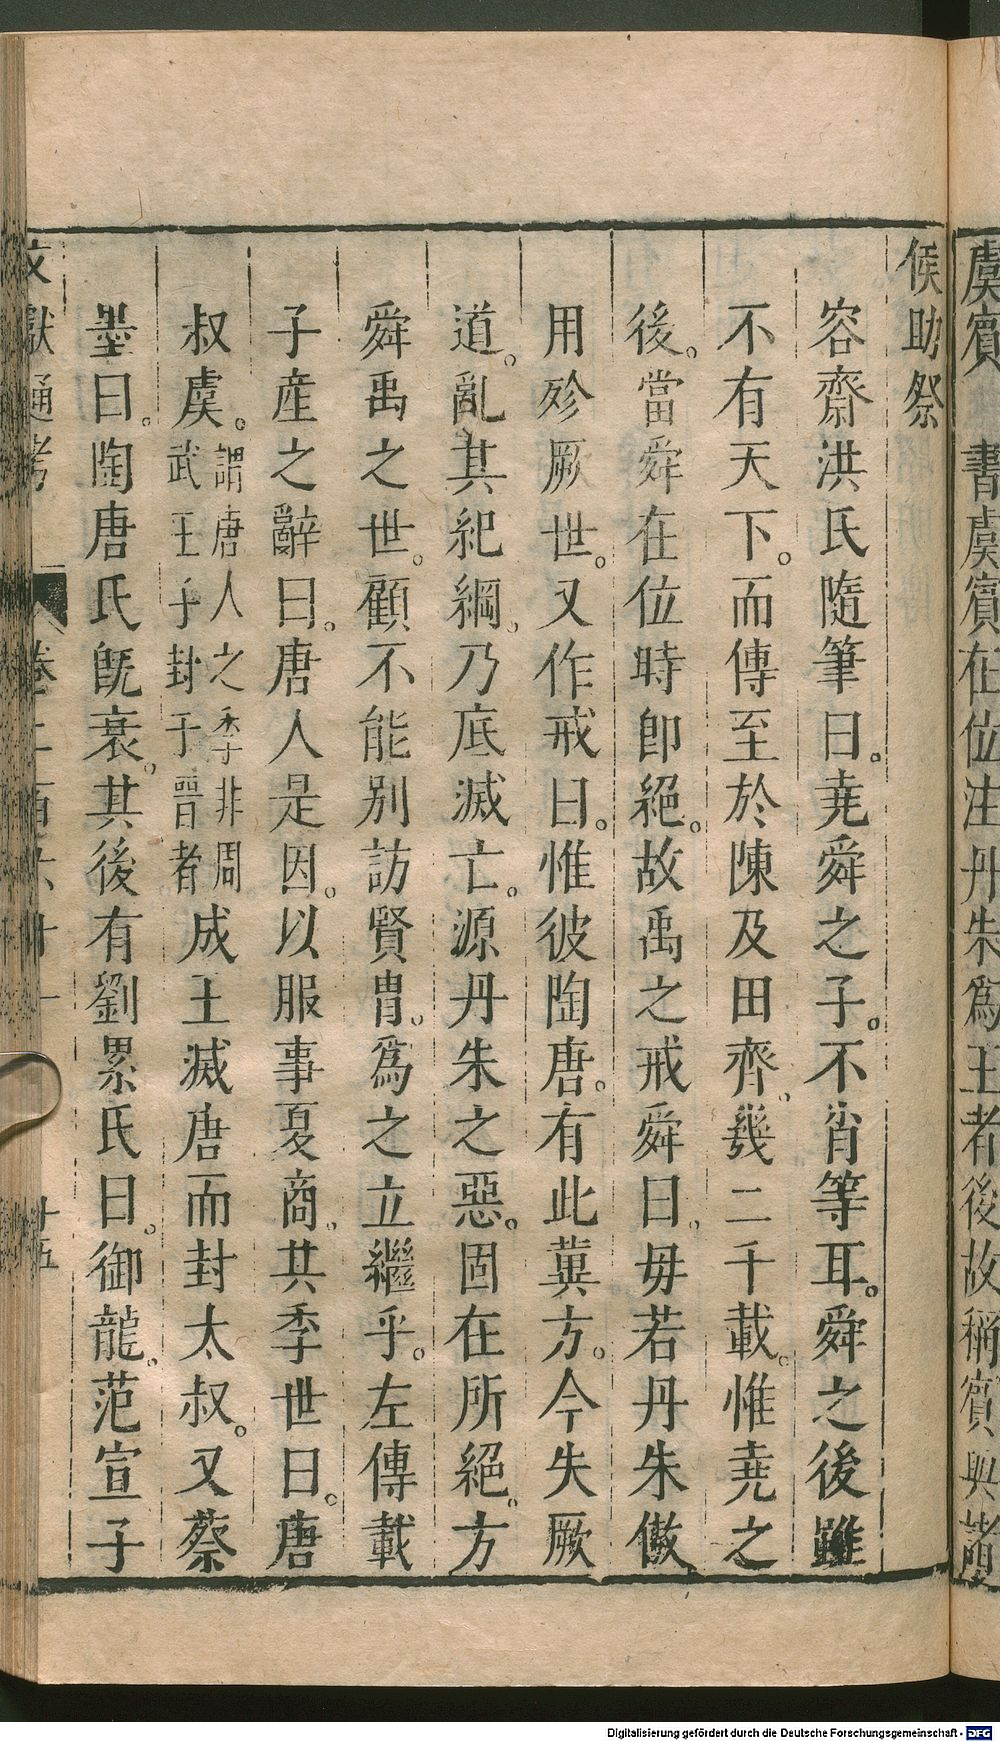 虞賓 書虞賓在位注丹朱爲王者後故稱賓與諸
侯助祭
容齋洪氏隨筆曰。堯舜之子。不肖等耳。舜之後雖
不有天下。而傳至於陳及田齊。幾二千載。惟堯之
後。當舜在位時卽絕。故禹之戒舜曰。毋若丹朱傲
用殄厥世。又作戒曰。惟彼陶唐。有此冀方。今失厥
道。亂其紀綱。乃底滅亡。源丹朱之惡。固在所絕。方
舜禹之世。顧不能別訪賢胄。爲之立繼乎。左傳載
子產之辭曰。唐人是因。以服事夏商。其季世曰。唐
叔虞。謂唐人之季非周武王子封于晉者成王滅唐而封太叔。又蔡
墨曰。陶唐氏旣衰。其後有劉累氏曰。御龍。范宣子
文獻通考 卷二百六十一 十五
Digitalisierung gefördert durch die Deutsche Forschungsgemeinschaft - DFG